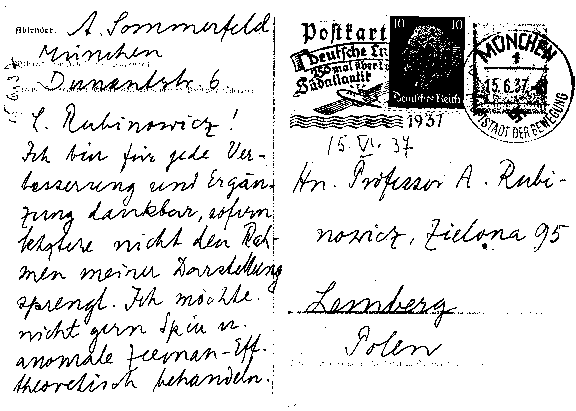 Absender: A. Sommerfeld
München
Dunantstr. 6
L. Rubinowicz!
Ich bin für jede Ver-
besserung und Ergän-
zung dankbar, sofern
letztere nicht den Rah-
men meiner Darstellung
sprengt. Ich möchte
nicht gern Spin u.
anomale Zeeman-Eff.
theoretisch behandeln.
Postkarte
Deutsche Lu
mal über
Südatlantik
10 10
Deutsches Reich
1937
MÜNCHEN
1
15.6.37
STADT DER BEWEGUNG
15. VI. 37
Hn. Professor A. Rubi-
nowicz, Zielona 95
Lemberg
Polen